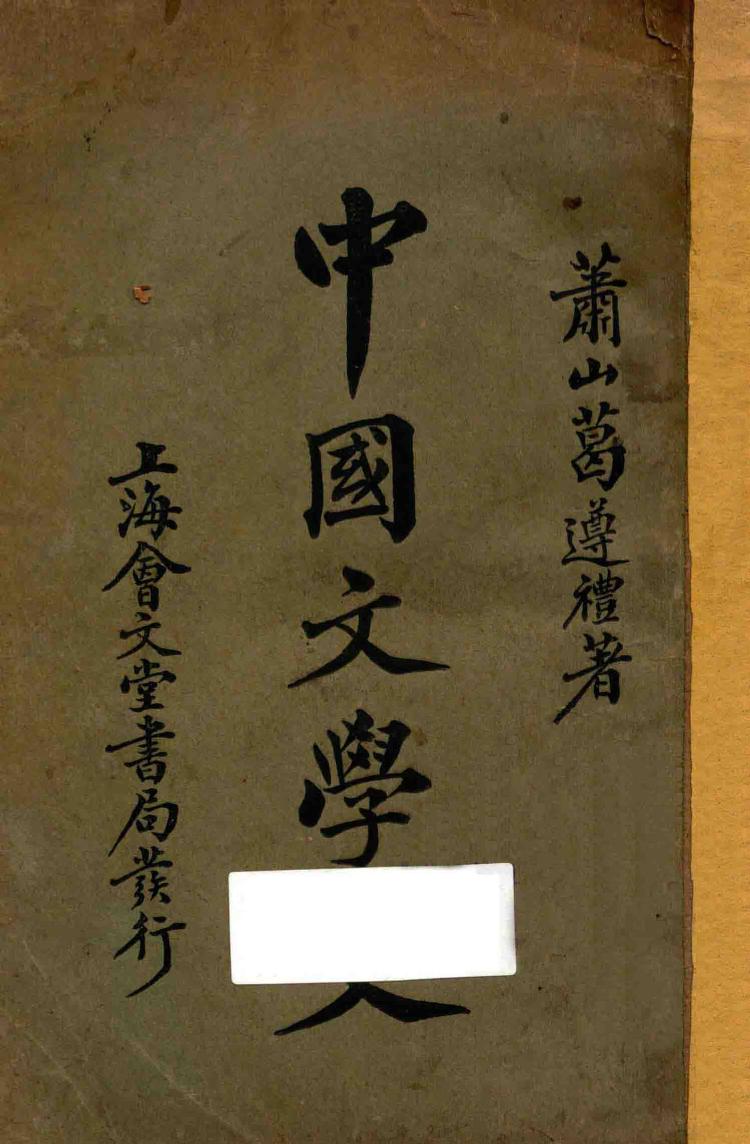 蕭山葛遵禮著
中國文學
上海會文堂書局發行